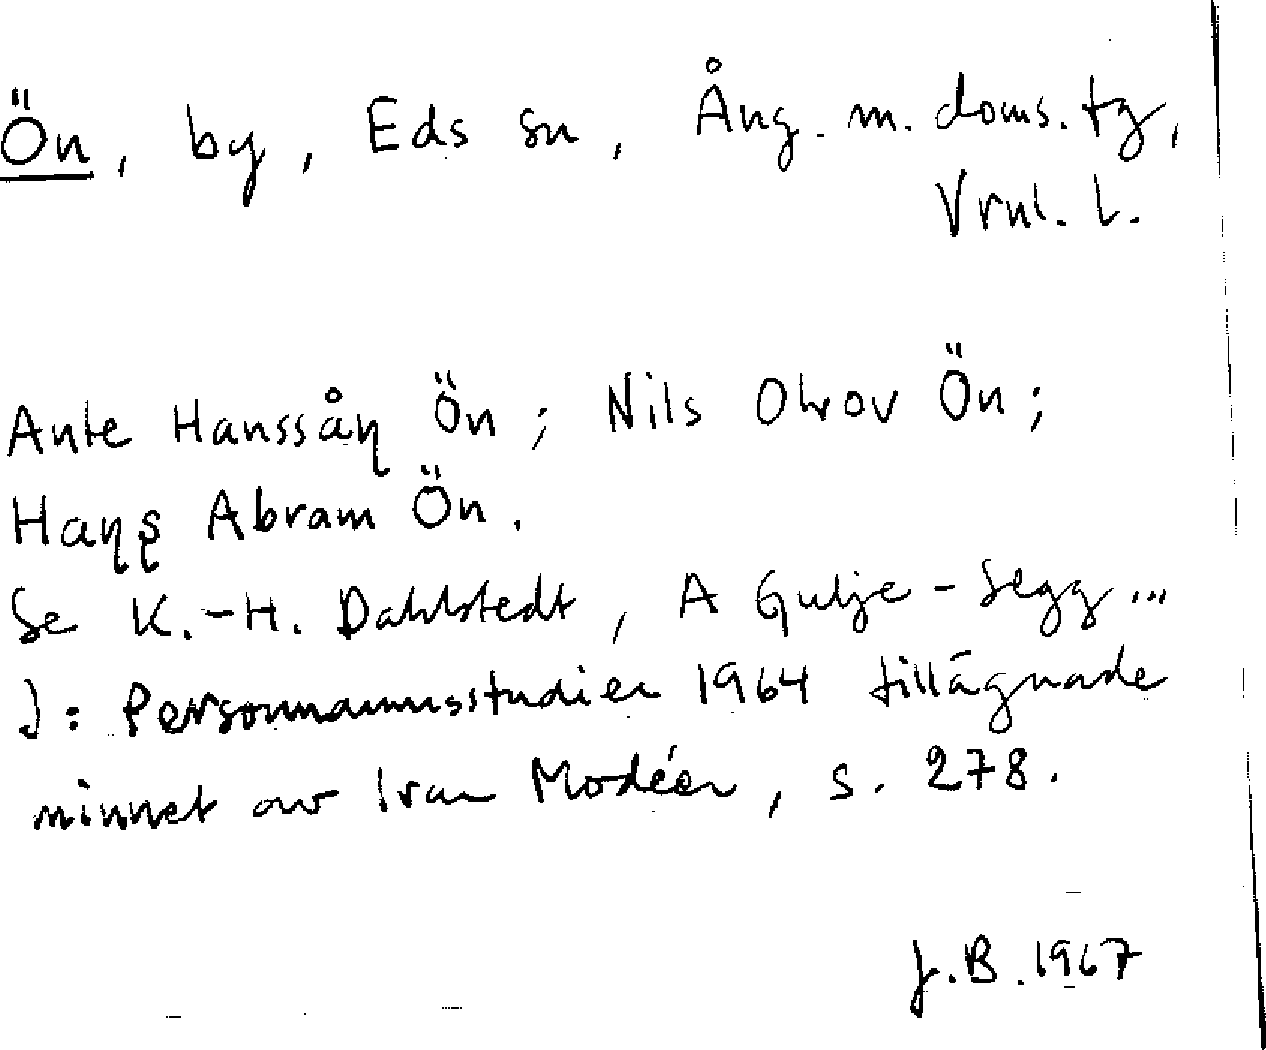 Ön, by, Eds sn, Ång. m. doms. tg,
Vrnl. l.
Ante Hanssåɳ Ön; Nils Olrov Ön;
Haɳʂ Abram Ön.
Se K.-H. Dahlstedt, A Gulje-Segg...
I: Personnamnsstudier 1964 tillägnade
minnet av Ivar Modéer, s. 278.
J.B. 1967